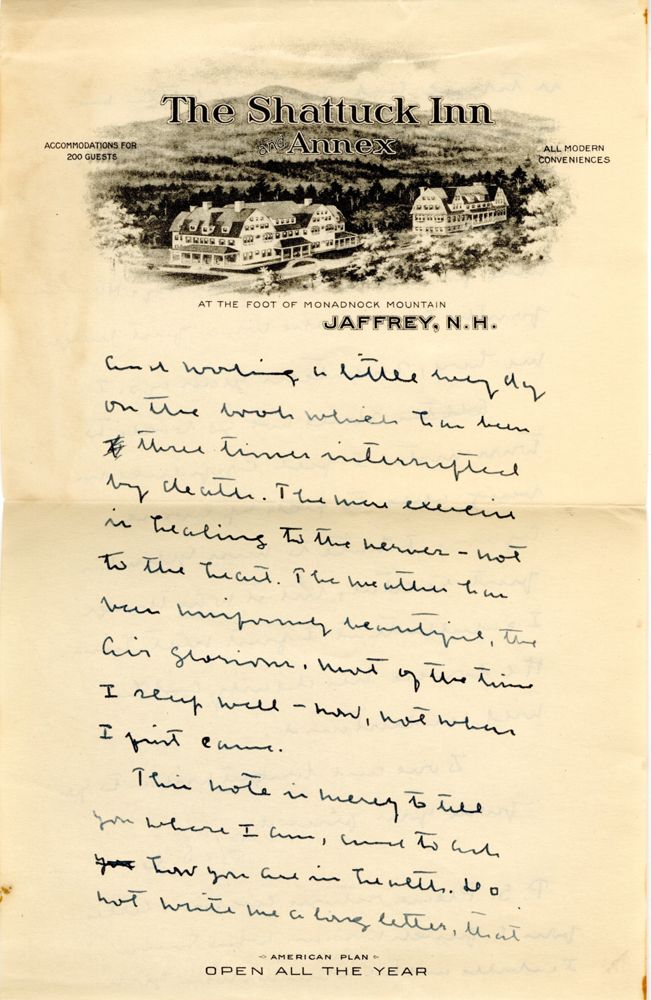 The Shattuck Inn
and Annex
ACCOMMODATIONS FOR
200 GUESTS
ALL MODERN
CONVENIENCES
AT THE FOOT OF MONADNOCK MOUNTAIN
JAFFREY, N.H.
and working a little every day
on the book which has been
three times interrupted
by death. The mere exercise
is healing to the nerves - not
to the heart. The weather has
been uniformly beautiful, the
air glorious. Most of the time
I sleep well - now, not when
I first came.
This note is merely to tell
you where I am, and to ask
you how you are in health. Do
not write me a long letter, that
AMERICAN PLAN
OPEN ALL THE YEAR